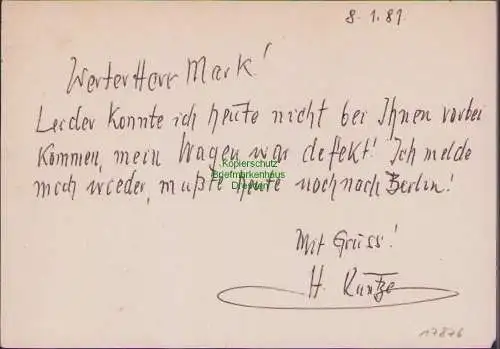 8.1.81
Werter Herr Mark!
Leider konnte ich heute nicht bei Ihnen vorbei
kommen, mein Wagen war defekt! Ich melde
mich wieder, mußte heute noch nach Berlin!
Kopierschutz
Briefmarkenhaus
Dresden
Mit Gruss!
H. Kuntze
17876